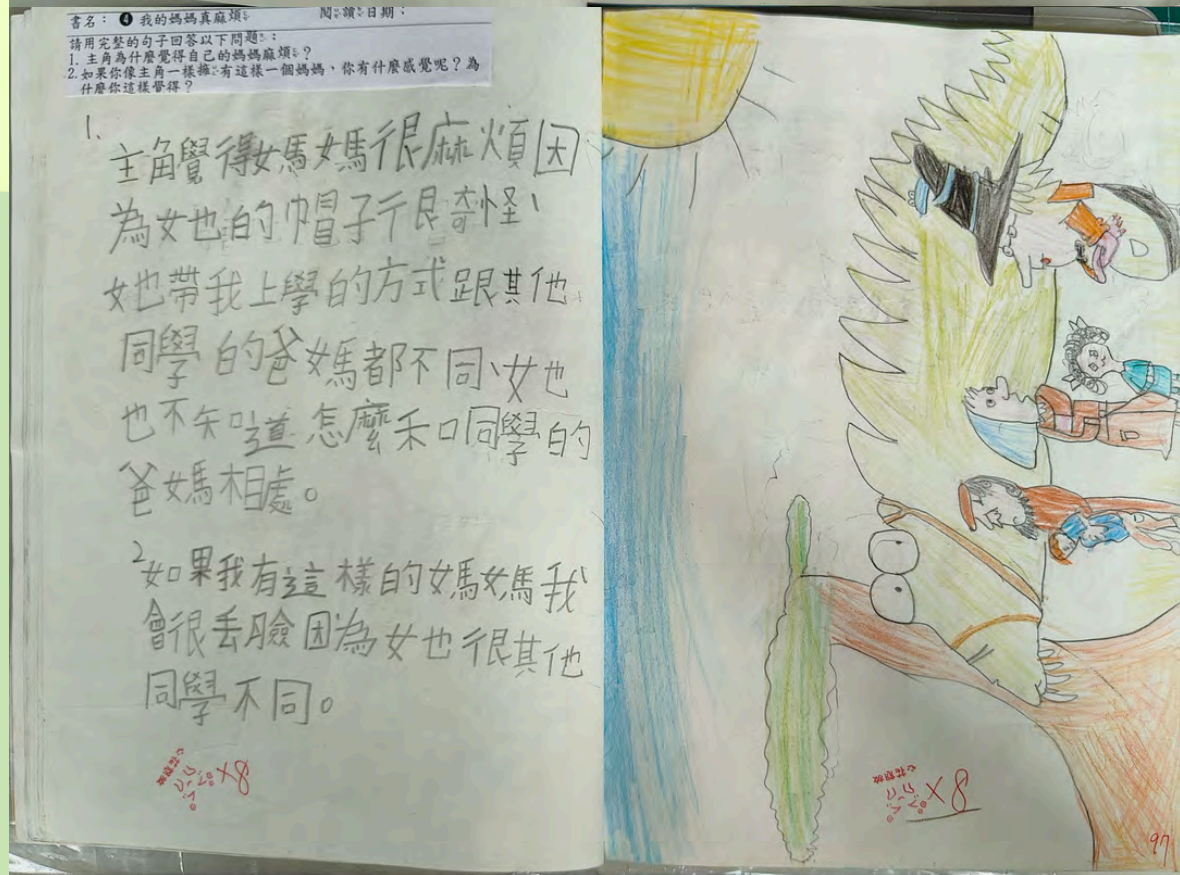 書名：❹ 我的媽媽真麻煩 閱讀日期：
請用完整的句子回答以下問題：
1. 主角為什麼覺得自己的媽媽麻煩？
2. 如果你像主角一樣擁有這樣一個媽媽，你有什麼感覺呢？為
什麼你這樣覺得？
1.
主角覺得媽媽很麻煩因
為她的帽子很奇怪、
她帶我上學的方式跟其他
同學的爸媽都不同、她
也不知道怎麼和同學的
爸媽相處。
2 如果我有這樣的媽媽我
會很丟臉因為她很其他
同學不同。
8x
心花朵朵
8x
97